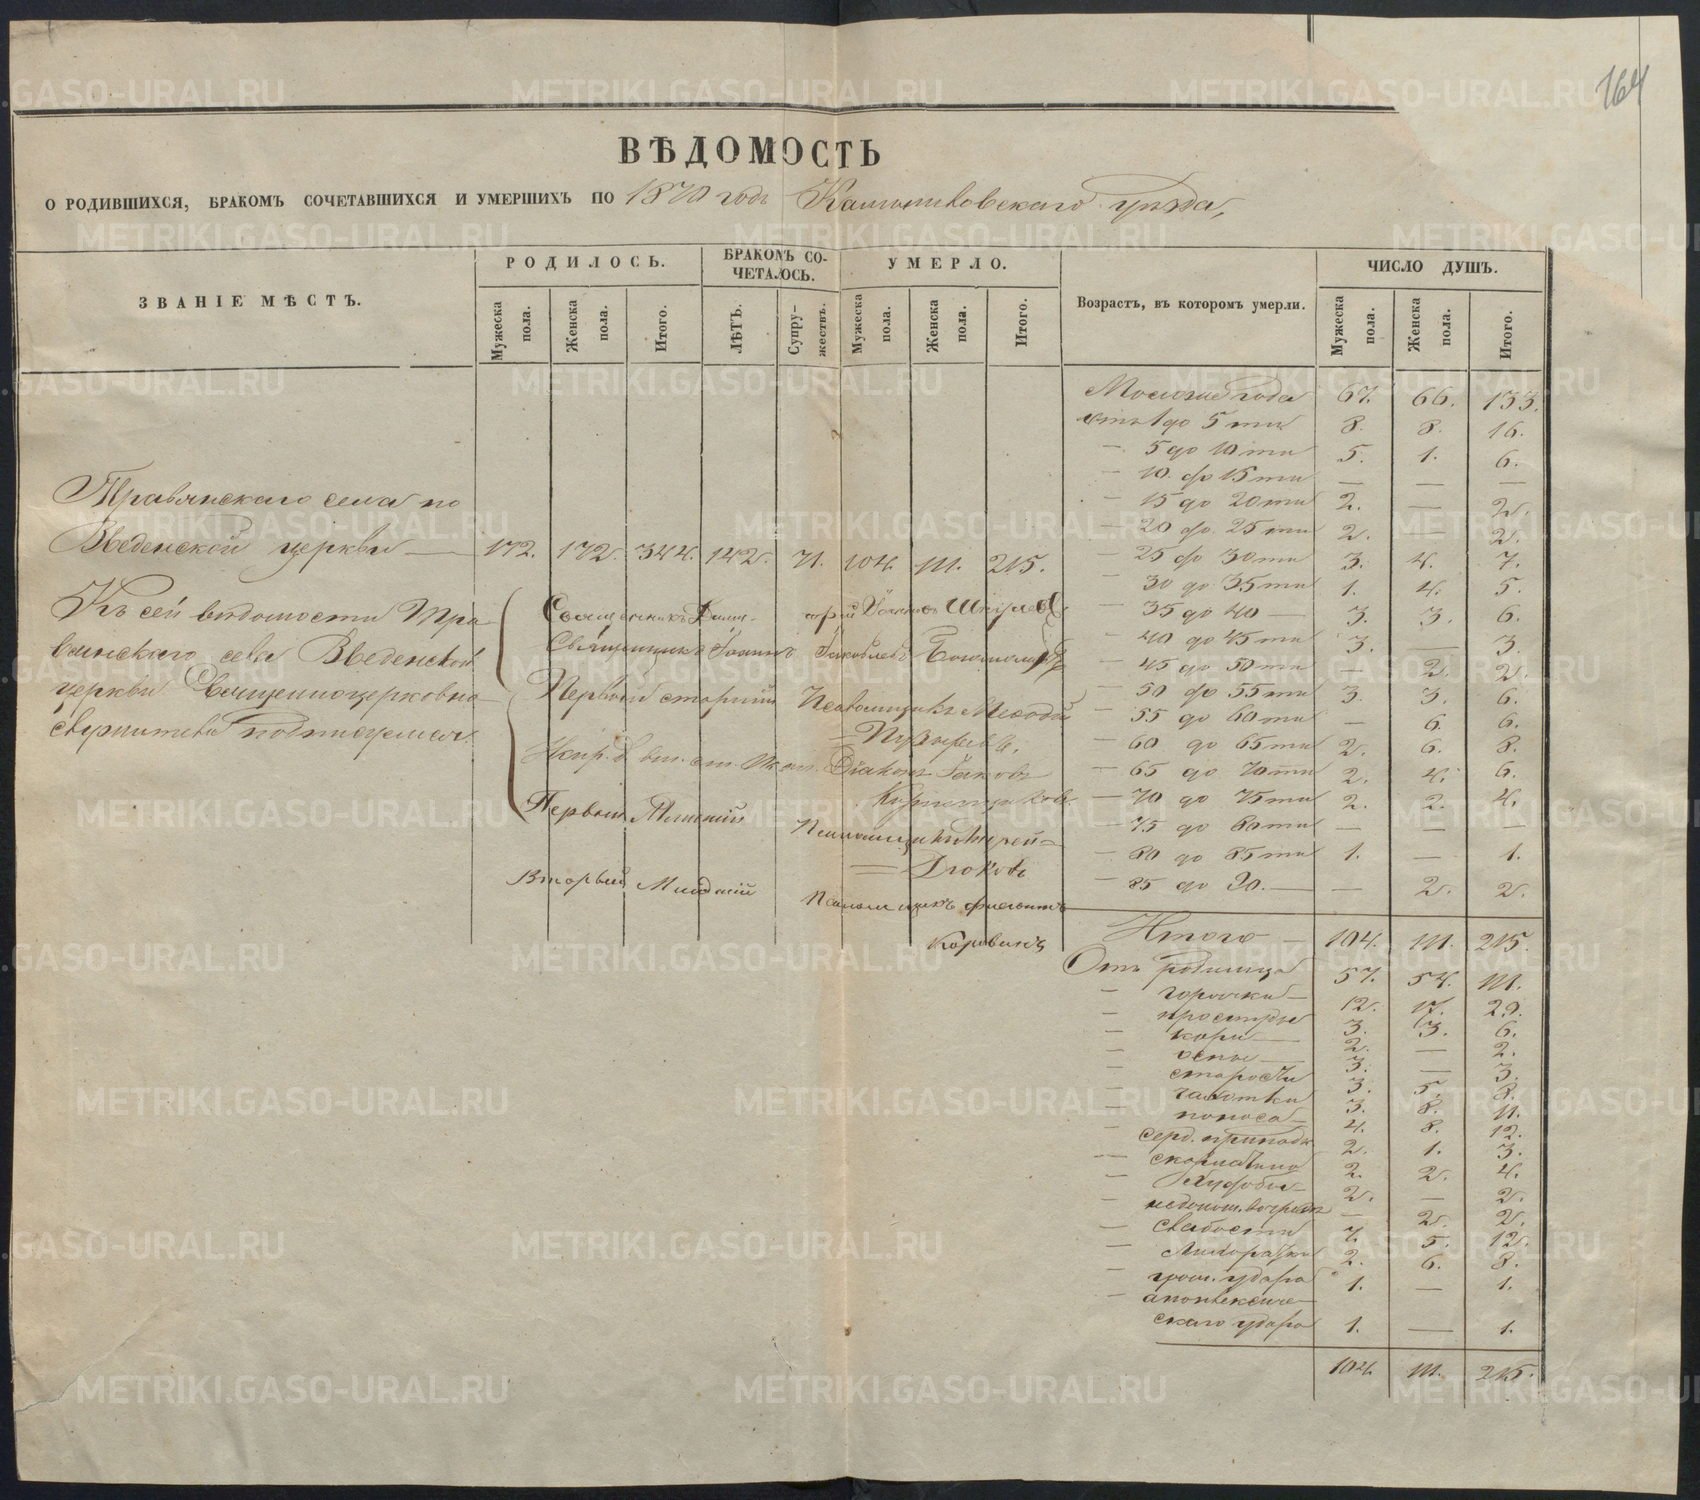 164
ВѢДОМОСТЬ
О РОДИВШИХСЯ, БРАКОМЪ СОЧЕТАВШИХСЯ И УМЕРШИХЪ ПО 1870 годъ Камышловскаго уѣзда,
ЗВАНІЕ МѢСТЪ.
РОДИЛОСЬ.
БРАКОМЪ СО-
ЧЕТАЛОСЬ.
УМЕРЛО.
Возрастъ, въ которомъ умерли.
ЧИСЛО ДУШЪ.
Мужеска пола.
Женска пола.
Итого.
ЛѢТЪ.
Супру-
жествъ.
Мужеска пола.
Женска пола.
Итого.
Мужеска пола.
Женска пола.
Итого.
Травянскаго села по
Введенской церкви — 172. 172. 344. 142. 71. 104. 111. 215.
Къ сей вѣдомости Тра-
вянскаго села Введенской
церкви Священноцерковно-
служители подписуемся.
Священникъ
Священникъ Іоаннъ Іаковлевъ
Первый старшій Псаломщикъ
Діаконъ Іаковъ
Первый Младшій
Псаломщикъ
Второй Младшій
Псаломщикъ
Коровинъ
Моложе года 67. 66. 133.
отъ 1 до 5 ти 8. 8. 16.
— 5 до 10 ти 5. 1. 6.
— 10 до 15 ти — — —
— 15 до 20 ти 2. — 2.
— 20 до 25 ти 2. — 2.
— 25 до 30 ти 3. 4. 7.
— 30 до 35 ти 1. 4. 5.
— 35 до 40 — 3. 3. 6.
— 40 до 45 ти 3. — 3.
— 45 до 50 ти — 2. 2.
— 50 до 55 ти 3. 3. 6.
— 55 до 60 ти — 6. 6.
— 60 до 65 ти 2. 6. 8.
— 65 до 70 ти 2. 4. 6.
— 70 до 75 ти 2. 2. 4.
— 75 до 80 ти — — —
— 80 до 85 ти 1. — 1.
— 85 до 90. — — 2. 2.
Итого — 104. 111. 215.
Отъ родимца 57. 54. 111.
— горячки — 12. 17. 29.
— простуды 3. 3. 6.
— кори — 2. — 2.
— оспы — 3. — 3.
— старости 3. 5. 8.
— чахотки 3. 8. 11.
— поноса — 4. 8. 12.
— серд. припадк. 2. 1. 3.
— скарлатины 2. 2. 4.
— 2. — 2.
— — 2. 2.
— слабости 7. 5. 12.
— Лихорадки 2. 6. 8.
— гром. удара 1. — 1.
— апоплексиче-
скаго удара 1. — 1.
104. 111. 215.
METRIKI.GASO-URAL.RU